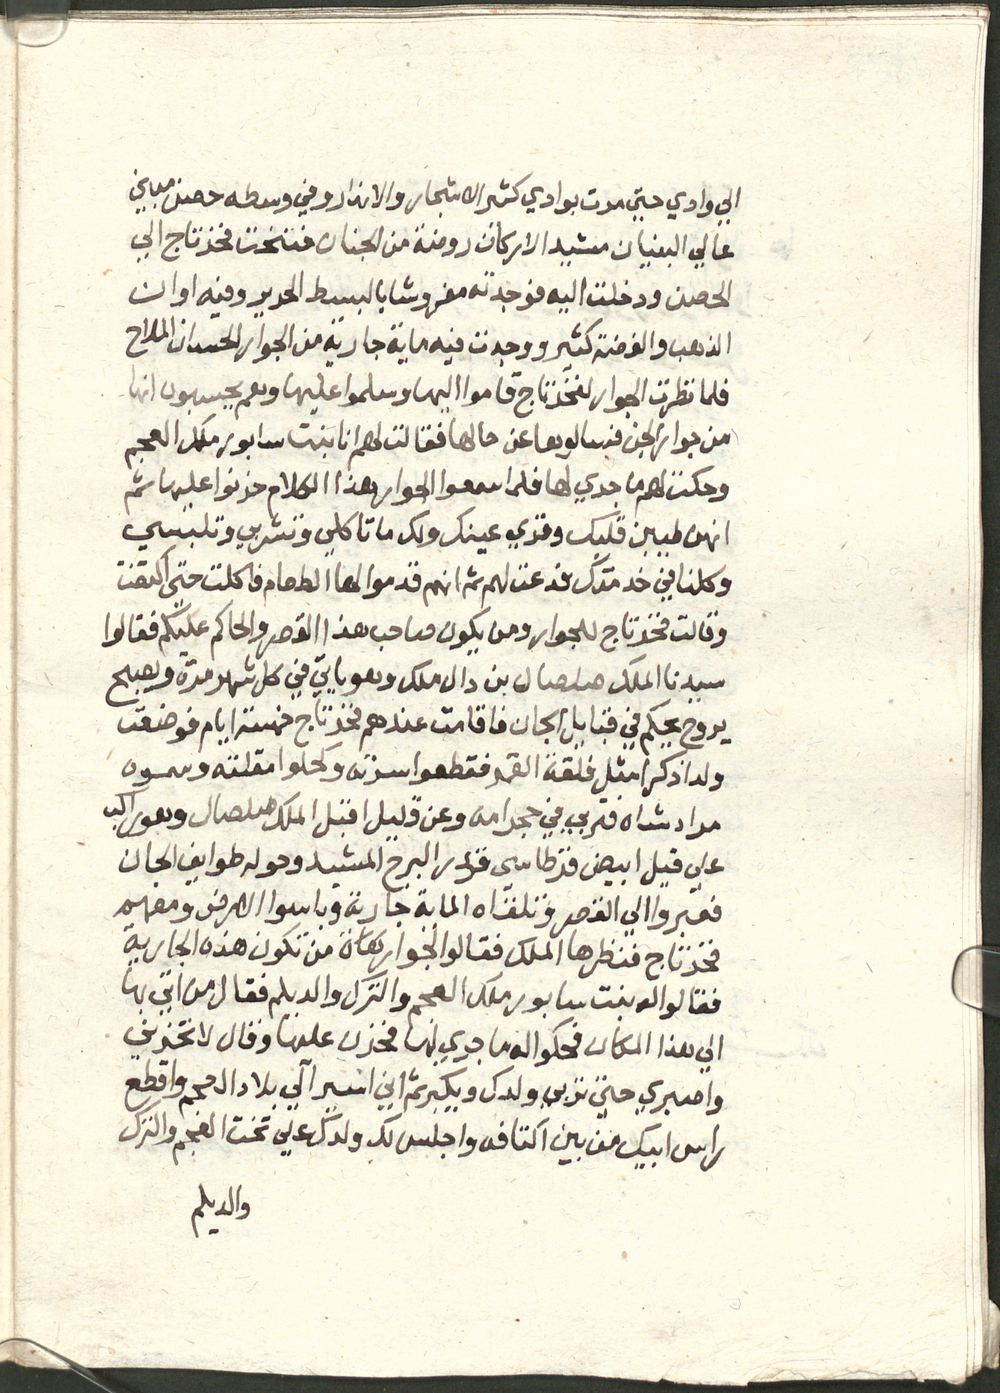 الي وادي حتي مرت بوادي كثير الاشجار والانهار وفي وسطه حصن مباني
عالي البنيان مشيد الاركان روضة من الجنان فنتخت فخذتاج الي
الحصن ودخلت اليه فوجدته مفروشا بالبسط الحرير وفيه اوان
الذهب والفضة كثير ووجدت فيه ماية جارية من الجوار الحسان الملاح
فلما نظرت الجوار لفخذتاج قاموا اليها وسلموا عليها وهم يحسبون انها
من جوار الجن فسالوها عن حالها فقالت لهم انا بنت سابور ملك العجم
وحكت لهم ما جري لها فلما سمعوا الجوار هذا الكلام حزنوا عليها ثم
انهن طيبين قلبك وقري عينك ولك ما تاكلي وتشربي وتلبسي
وكلنا في خدمتك فدعت لهم ثم انهم قدموا لها الطعام فاكلت حتي اكتفت
وقالت فخذتاج للجوار ومن يكون صاحب هذا القصر والحاكم عليكم فقالوا
سيدنا الملك صلصال بن دال ملك وهو ياتي في كل شهر مرة ويصبح
يروح يحكم في قبايل الجان فاقامت عندهم فخذتاج خمسة ايام فوضعت
ولدا ذكرا مثل فلقة القمر فقطعوا سرته وكحلوا مقلته وسموه
مراد شاه فتربي في حجر امه وعن قليل اقبل الملك صلصال وهو راكب
علي فيل ابيض قرطاسي قدر البرج المشيد وحوله طوايف الجان
فعبروا الي القصر وتلقاه الماية جارية وباسوا الارض ومعهم
فخذتاج فنظرها الملك فقالوا الجوار من تكون هذه الجارية
فقالوا له بنت سابور ملك العجم والترك والديلم فقال من اتي بها
الي هذا المكان فحكوا له ما جري لها فحزن عليها وقال لا تحزني
واصبري حتي تربي ولدك ويكبر ثم اني اسير الي بلاد العجم واقطع
راس ابيك من بين اكتافه واجلس لك ولدك علي تخت العجم والترك
والديلم